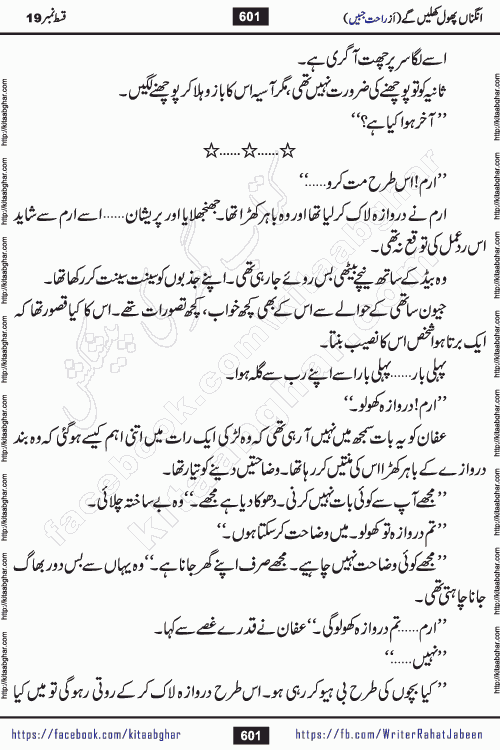 انگناں پھول کھلیں گے (از راحت جبیں)
601
قسط نمبر 19
اسے لگا سر پر چھت آ گری ہے۔
ثانیہ کو تو پوچھنے کی ضرورت نہیں تھی، مگر آسیہ اس کا بازو ہلا کر پوچھنے لگیں۔
’’آخر ہوا کیا ہے؟‘‘
☆......☆......☆
’’ارم! اس طرح مت کرو......‘‘
ارم نے دروازہ لاک کر لیا تھا اور وہ باہر کھڑا تھا۔ جھنجھلایا اور پریشان......اسے ارم سے شاید
اس ردعمل کی توقع نہ تھی۔
وہ بیڈ کے ساتھ نیچے بیٹھی بس روئے جا رہی تھی۔ اپنے جذبوں کو سینت سینت کر رکھا تھا۔
جیون ساتھی کے حوالے سے اس کے بھی کچھ خواب، کچھ تصورات تھے۔ اس کا کیا قصور تھا کہ
ایک برتا ہوا شخص اس کا نصیب بنتا۔
پہلی بار......پہلی بار اسے اپنے رب سے گلہ ہوا۔
’’ارم! دروازہ کھولو۔‘‘
عفان کو یہ بات سمجھ میں نہیں آ رہی تھی کہ وہ لڑکی ایک رات میں اتنی اہم کیسے ہو گئی کہ وہ بند
دروازے کے باہر کھڑا اس کی منتیں کر رہا تھا۔ وضاحتیں دینے کو تیار تھا۔
’’مجھے آپ سے کوئی بات نہیں کرنی۔ دھوکا دیا ہے مجھے۔‘‘ وہ بے ساختہ چلائی۔
’’تم دروازہ تو کھولو۔ میں وضاحت کر سکتا ہوں۔‘‘
’’مجھے کوئی وضاحت نہیں چاہیے۔ مجھے صرف اپنے گھر جانا ہے۔‘‘ وہ یہاں سے بس دور بھاگ
جانا چاہتی تھی۔
’’ارم......تم دروازہ کھولو گی۔‘‘ عفان نے قدرے غصے سے کہا۔
’’نہیں......‘‘
’’کیا بچوں کی طرح بی ہیو کر رہی ہو۔ اس طرح دروازہ لاک کر کے روتی رہو گی تو میں کیا
https://facebook.com/kitaabghar
601
https://fb.com/WriterRahatJabeen
http://kitaabghar.com